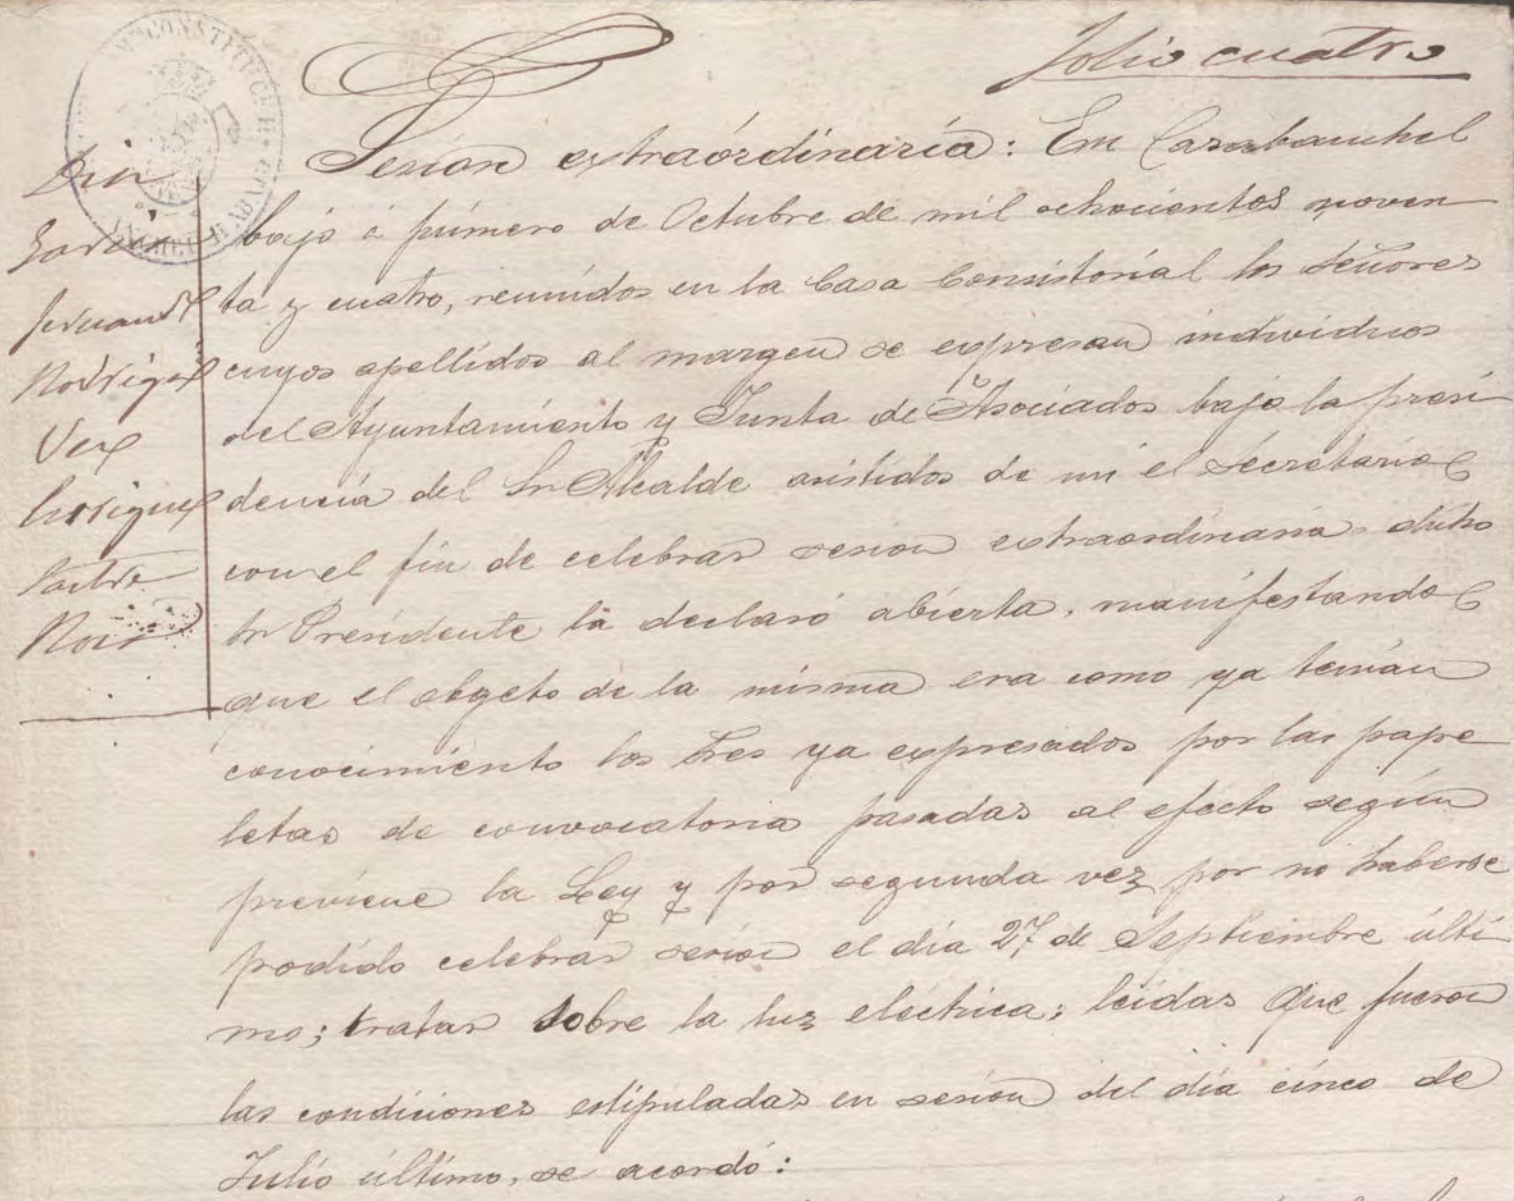 Folio cuatro
Sesion extraórdinaria: En Carabanchel
bajo á primero de Octubre de mil ochocientos noven
ta y cuatro, reunidos en la Casa Consistorial los Señores
cuyos apellidos al margen se expresan individuos
del Ayuntamiento y Junta de Asociados bajo la presi
dencia del Sr Alcalde asistidos de mi el Secretario
con el fin de celebrar sesion extraordinaria dicho
Sr Presidente la declaró abierta, manifestando
que el obgeto de la misma era como ya tenian
conocimiento los Sres ya expresados por las pape
letas de convocatoria pasadas al efecto según
previene la Ley y por segunda vez por no haberse
podido celebrar sesion el dia 27 de Septiembre ulti
mo; tratar sobre la luz eléctrica; leidas que fueron
las condiciones estipuladas en sesion del dia cinco de
Julio último, se acordó:
Din
Garcia
Fernandz
Rodriguz
Vex
Enriquez
Sastre